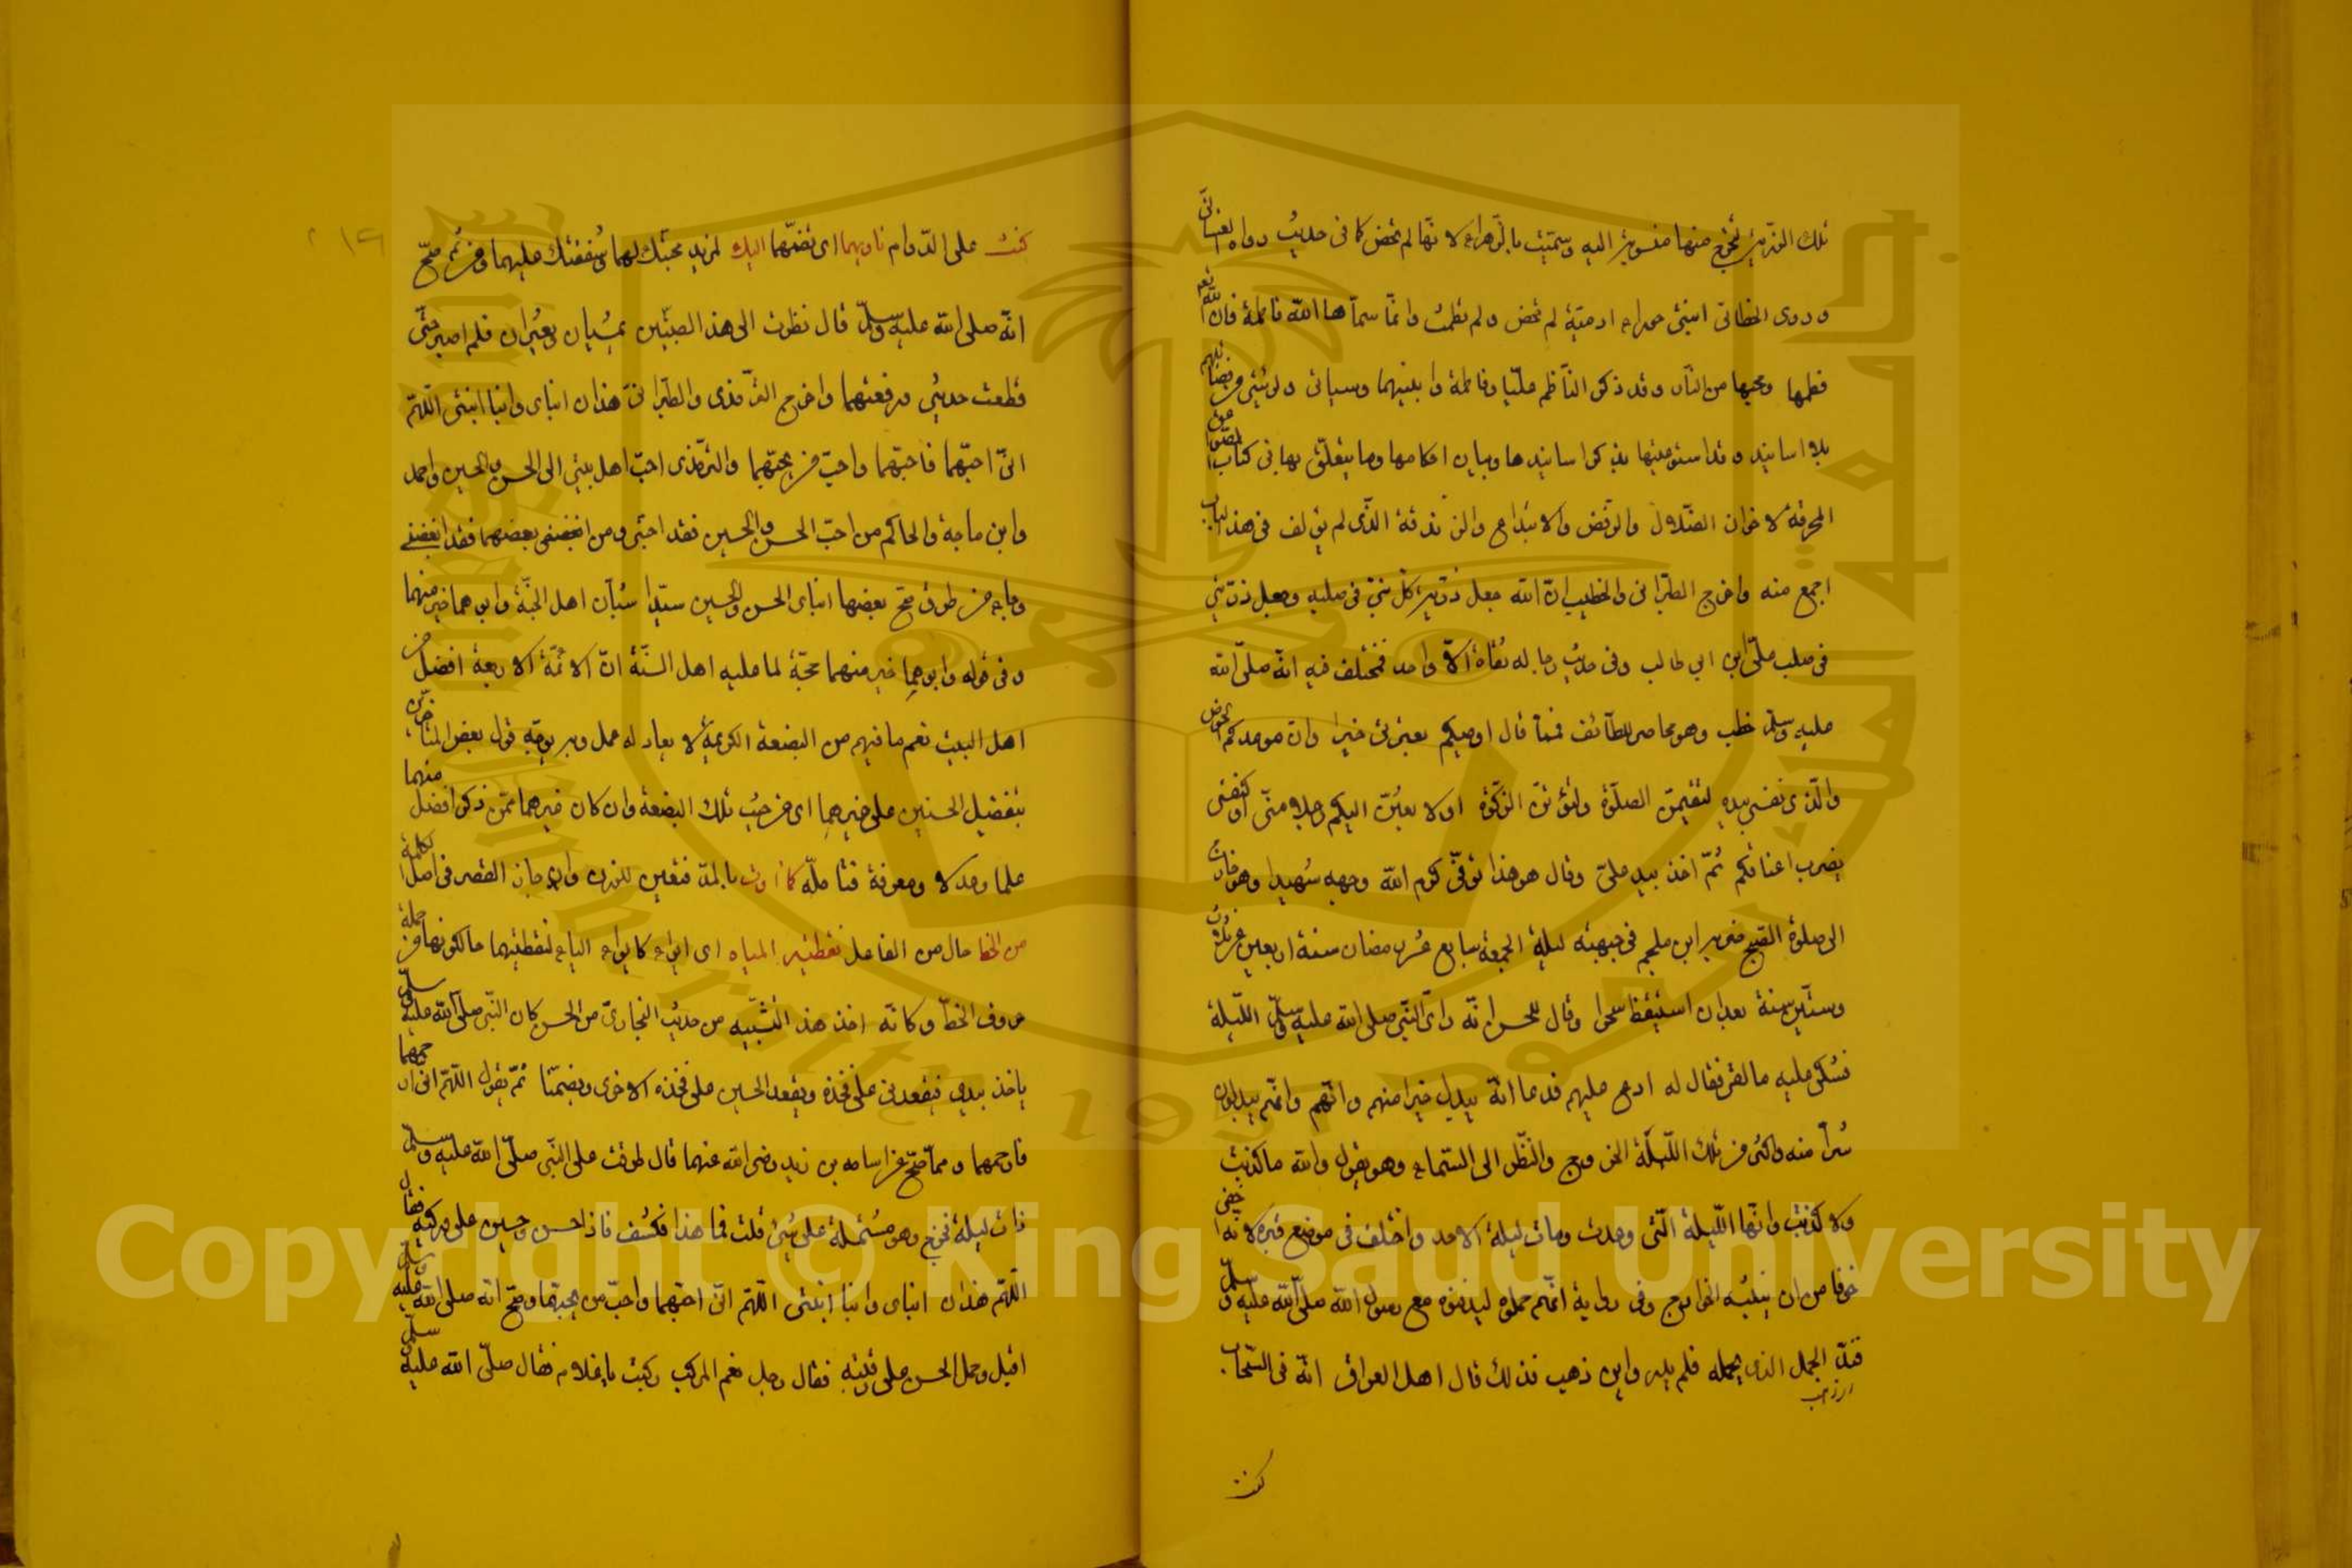 تلك الذرية تخرج منها منسوبة اليه وسميت بالزهراء لانها لم تحض كما في حديث رواه الغساني
وروى الخطابي ابنتي حوراء ادمية لم تحض ولم تطمث وانما سماها الله فاطمة فان الله تعم
فطمها ومحبيها من النار وقد ذكر الناظم عليا وفاطمة وابنيهما وسياتي ولو شئ من فضائلهم
بلا اسانيد وقد استوفيتها بذكر اسانيدها وبيان احكامها وما يتعلق بها في كتاب الصواعق
المحرقة لاخوان الضلال والرفض والابتداع والزندقة الذي لم يؤلف في هذا الباب
اجمع منه واخرج الطبراني والخطيب ان الله جعل ذرية كل نبي في صلبه وجعل ذريتي
في صلب علي ابن ابي طالب وفي حديث رجاله ثقاة الا واحد فمختلف فيه انه صلى الله
عليه وسلم خطب وهو محاصر للطائف فما قال اوصيكم بعترتي خيرا وان موعدكم الحوض
والذي نفسي بيده لتقيمن الصلوة ولتؤتن الزكوة او لابعثن اليكم رجلا مني او كنفسي
يضرب اعناقكم ثم اخذ بيد علي وقال هو هذا توفي كرم الله وجهه شهيدا وهو خارج
الى صلوة الصبح ضربه ابن ملجم في جبهته ليلة الجمعة سابع عشر رمضان سنة اربعين عن ثلاث
وستين سنة بعد ان استيقظ سحرا وقال للحسن انه راى النبي صلى الله عليه وسلم الليلة
فشكى عليه ما لقي فقال له ادع عليهم فدعا انه يبدل خيرا منهم وانهم يبدلون
شرا منه واكثر من تلك الليلة الخروج والنظر الى السماء وهو يقول والله ما كذبت
ولا كذبت وانها الليلة التي وعدت ومات ليلة الاحد واختلف في موضع قبره لانه اخفي
خوفا من ان ينبشه الخوارج وفي رواية انهم حملوه ليدفنوه مع رسول الله صلى الله عليه وسلم
فند الجمل الذي يحمله فلم يدر واين ذهب فذلك قال اهل العراق انه في السحاب
كنت
كنت على الدوام تاويهما اي تضمهما اليك لمزيد محبتك لهما وشفقتك عليهما ومن ثم صح
انه صلى الله عليه وسلم قال نظرت الى هذا الصبيين يمشيان ويعثران فلم اصبر حتى
قطعت حديثي ورفعتهما واخرج الترمذي والطبراني هذان ابناي وابنا ابنتي اللهم
اني احبهما فاحبهما واحب من يحبهما والترمذي احب اهل بيتي الى الحسن والحسين واحمد
وابن ماجة والحاكم من احب الحسن والحسين فقد احبني ومن ابغضهما فقد ابغضني
وجاء من طرق صح بعضها ابناي الحسن والحسين سيدا شباب اهل الجنة وابوهما خير منهما
وفي قوله وابوهما خير منهما حجة لما عليه اهل السنة ان الائمة الاربعة افضل من
اهل البيت نعم ما فيهم من البضعة الكريمة لا يعادله عمل وبه يوجه قول بعض المتأخرين
بتفضيل الحسنين على غيرهما اي من حيث تلك البضعة وان كان غيرهما ممن ذكر افضل منهما
علما وعدلا ومعرفة فتامله كما اوت بالمد فتعين للوزن وان جاز القصر في اصل الكلمة
من الخط حال من الفاعل نقطتيها الياء اي ايواء كايواء الياء لنقطتيهما حالكونها من جملة
حروف الخط وكانه اخذ هذا التشبيه من حديث البخاري عن الحسن كان النبي صلى الله عليه وسلم
ياخذ بيدي فيقعدني على فخذه ويقعد الحسين على فخذه الاخرى ويضمنا ثم يقول اللهم اني ارحمهما
فارحمهما ومما صح عن اسامه بن زيد رضي الله عنهما قال طرقت على النبي صلى الله عليه وسلم
ذات ليلة فخرج وهو مشتملة على شئ قلت فما هذا فكشف فاذا حسن وحسين على وركيه فقال
اللهم هذان ابناي وابنا ابنتي اللهم اني احبهما واحب من يحبهما وصح انه صلى الله عليه وسلم
اقبل وحمل الحسن على رقبته فقال رجل نعم المركب ركبت يا غلام فقال صلى الله عليه وسلم
Copyright © King Saud University
1957